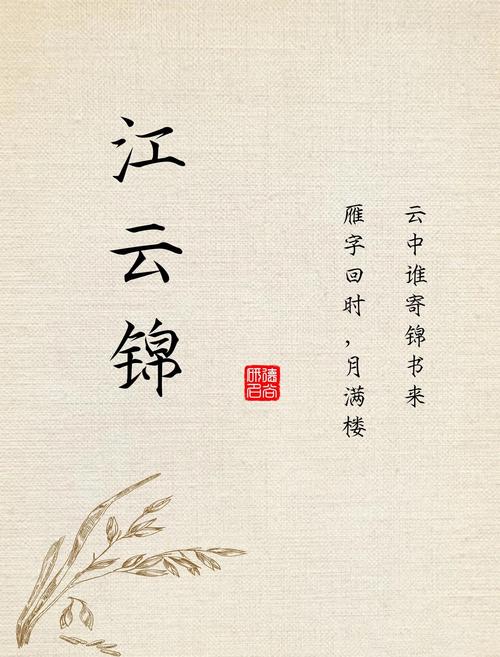 云中谁寄锦书来
雁字回时，月满楼
江云锦